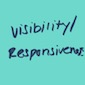 Visibility/
Responsiveness